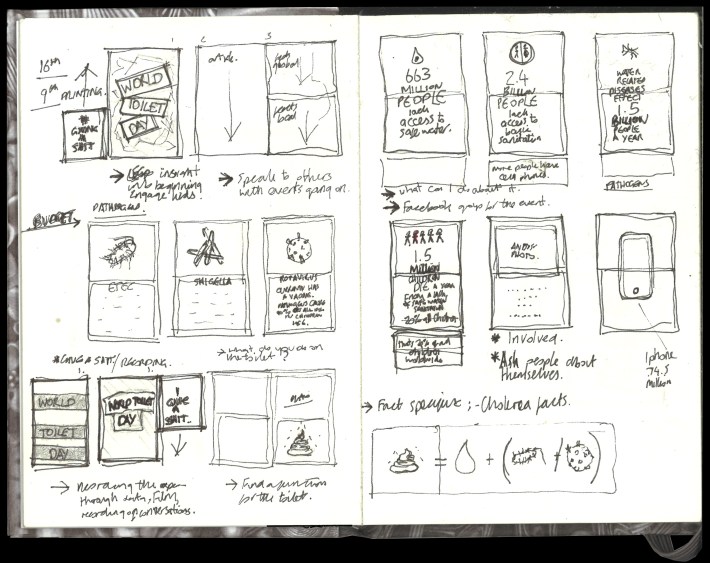 16th
9th
PRINTING.
1
2
3
WORLD
TOILET
DAY
#
GIVING
A
SHIT
article.
insight
into beginning
Engage kids.
Speak to others
with events going on.
BUDGET
PATHOGENS.
ETEC
SHIGELLA
ROTAVIRUS
what do you do on
the toilet?
#GIVE A SHIT / RECORDING.
WORLD
TOILET
DAY
WORLD TOILET
DAY
I
GIVE
A
SHIT..
Recording the
through data, Film,
recording of conversations.
Find a function
for the toilet.
663
MILLION
PEOPLE
lack
access to
safe water.
2.4
BILLION
PEOPLE
lack
access to
basic
sanitation
WATER
RELATED
DISEASES
EFFECT
1.5
BILLION
PEOPLE
A YEAR
more people have
cell phones.
PATHOGENS
what can I do about it.
Facebook group for the event.
1.5
Million
CHILDREN
DIE A YEAR
FROM A LACK
OF SAFE WATER
SANITATION
children
worldwide
* Involved.
* Ask people about
themselves.
Iphone
74.5
Million
Fact specific ; - Cholerea facts.
= + ( + )